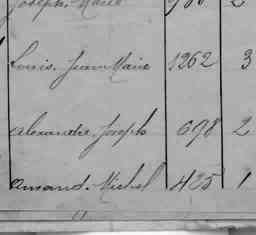 Joseph. Marie 2
Louis. Jean Marie 1262 3
Alexandre. Joseph 698 2
Amand. Michel 425 1